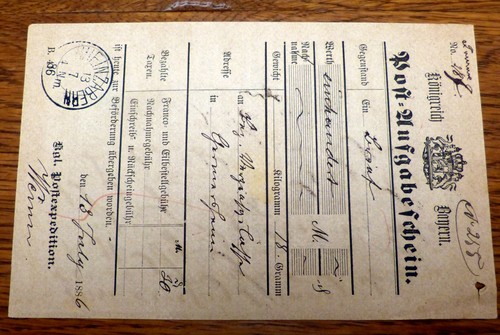 No. 187.
Königreich Bayern.
No 255
Post-Aufgabeschein.
Gegenstand Ein Brief
Werth einhundert M. ₰
Nachnahme M. ₰
Gewicht Kilogramm 18 Gramm
Adresse an
in Germersheim
Bezahlte Taxen.
Franco- und Eilbestellgebühr
Nachnahmegebühr
Einschreib- u. Rückscheingebühr
M. ₰
20
ist heute zur Beförderung übergeben worden.
den 13 July 1886
Kgl. Postexpedition.
RHEINZABERN
13
7
Nm.
B. 86